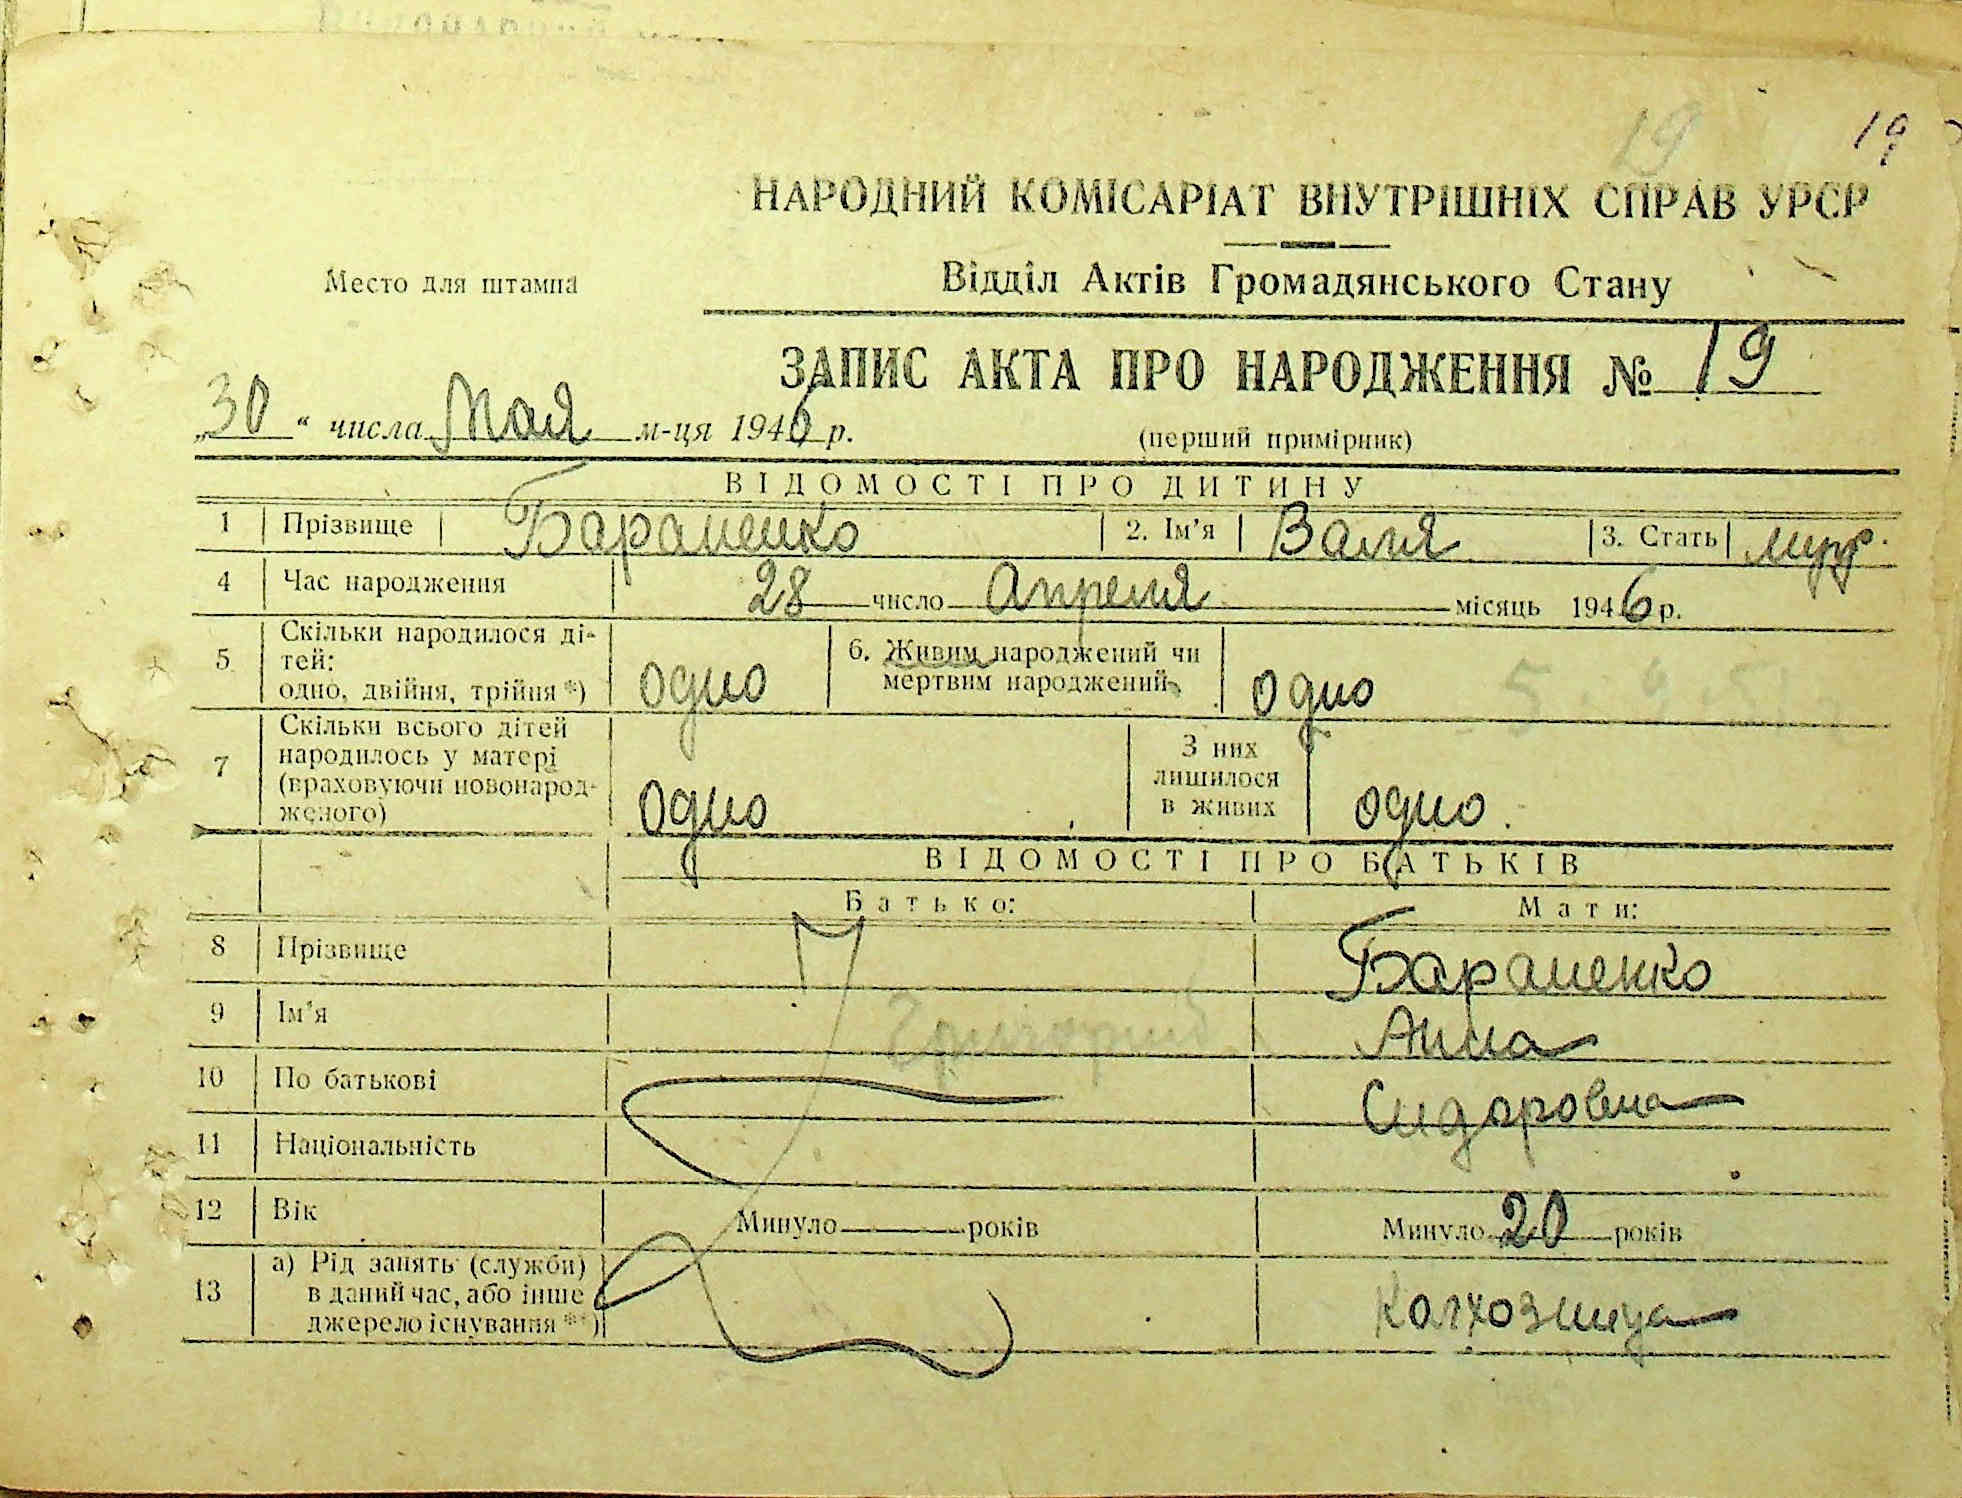 19 19
НАРОДНИЙ КОМІСАРІАТ ВНУТРІШНІХ СПРАВ УРСР
Место для штампа
Відділ Актів Громадянського Стану
ЗАПИС АКТА ПРО НАРОДЖЕННЯ № 19
„30 " числа Мая м-ця 1946 р.
(перший примірник)
ВІДОМОСТІ ПРО ДИТИНУ
1 Прізвище Бараненко 2. Ім'я Валя 3. Стать муж.
4 Час народження 28 число Апреля місяць 1946 р.
5 Скільки народилося ді-
тей:
одно, двійня, трійня *) одно
6. Живим народжений чи
мертвим народжений одно
7 Скільки всього дітей
народилось у матері
(враховуючи новонарод-
женого) одно
З них
лишилося
в живих одно.
ВІДОМОСТІ ПРО БАТЬКІВ
Батько: Мати:
8 Прізвище Бараненко
9 Ім'я Григорий Анна
10 По батькові Сидоровна
11 Національність
12 Вік Минуло років Минуло 20 років
13 а) Рід занять (служби)
в даний час, або інше
джерело існування *) Колхозница